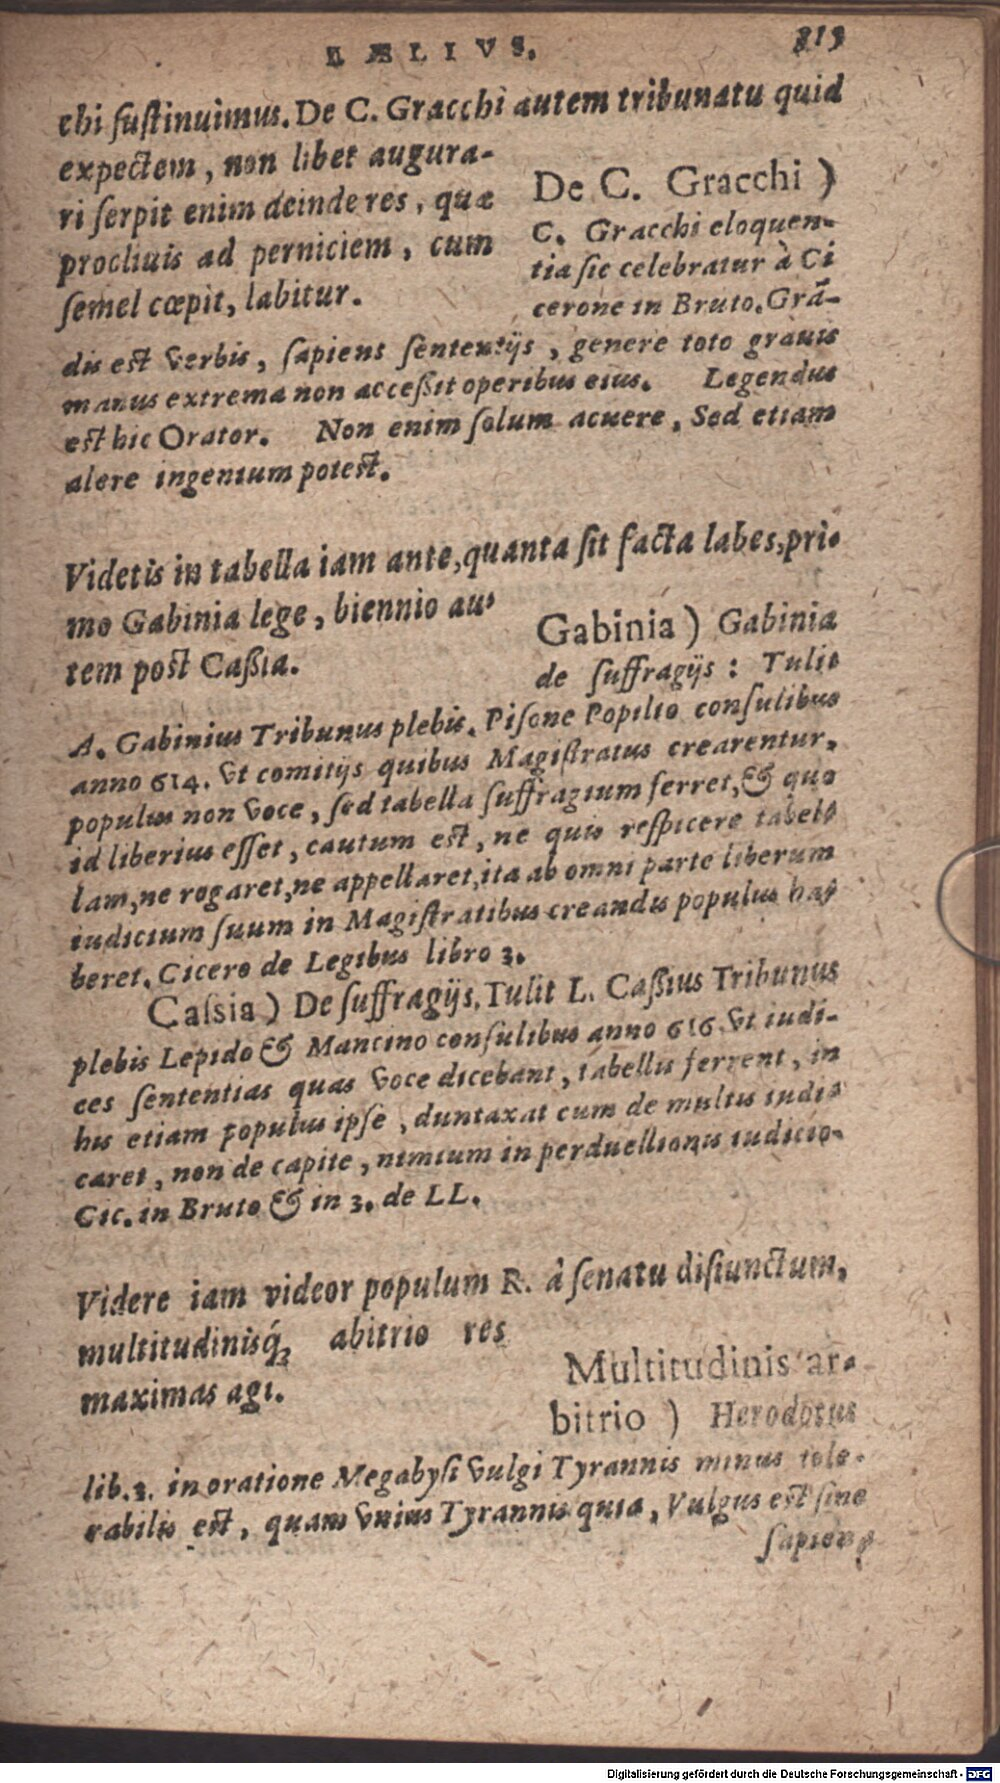 LÆLIVS. 313
chi ſuſtinuimus. De C. Gracchi autem tribunatu quid
expectem, non libet augura-
ri ſerpit enim deinde res, quæ
procliuis ad perniciem, cum
ſemel cœpit, labitur.
De C. Gracchi )
C. Gracchi eloquen-
tia ſic celebratur à Ci
cerone in Bruto. Grā-
dis est verbis, ſapiens ſententijs, genere toto grauis
manus extrema non acceßit operibus eius. Legendus
est hic Orator. Non enim ſolum acuere, Sed etiam
alere ingenium potest.
Videtis in tabella iam ante, quanta ſit facta labes, pri-
mo Gabinia lege, biennio au-
tem post Caßia.
Gabinia ) Gabinia
de ſuffragijs : Tulit
A. Gabinius Tribunus plebis. Piſone Popilio conſulibus
anno 614. vt comitijs quibus Magiſtratus crearentur,
populus non voce, ſed tabella ſuffragium ferret, & quo
id liberius eſſet, cautum est, ne quis reſpicere tabel-
lam, ne rogaret, ne appellaret, ita ab omni parte liberum
iudicium ſuum in Magiſtratibus creandis populus ha-
beret. Cicero de Legibus libro 3.
Caſsia ) De ſuffragijs. Tulit L. Caßius Tribunus
plebis Lepido & Mancino conſulibus anno 616. vt iudi-
ces ſententias quas voce dicebant, tabellis ferrent, in
his etiam populus ipſe, duntaxat cum de multis iudi-
caret, non de capite, nimium in perduellionis iudicio.
Cic. in Bruto & in 3. de LL.
Videre iam videor populum R. à ſenatu diſiunctum,
multitudinisq́; abitrio res
maximas agi.
Multitudinis ar-
bitrio ) Herodotus
lib. 3. in oratione Megabyſi vulgi Tyrannis minus tole-
rabilis est, quam vnius Tyrannis quia, Vulgus est ſine
ſapiens
Digitalisierung gefördert durch die Deutsche Forschungsgemeinschaft - DFG